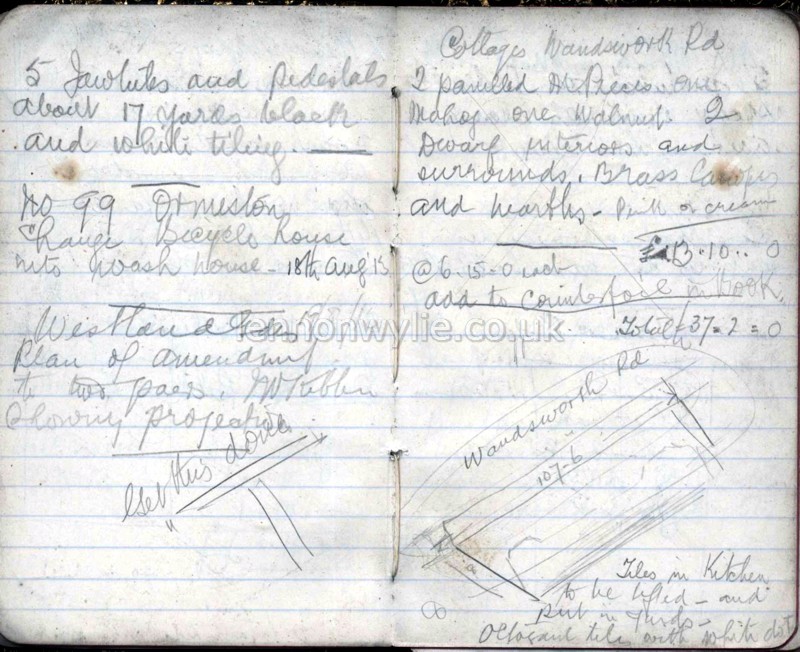 5 Jawhites and pedestals
about 17 yards black
and white tiling.
No 99 Ormiston
Change Bicycle house
into Wash house - 18th Aug 13
Westland
Plan of amendment
to two pairs,
Showing projection
Get this done
"
Cottages Wandsworth Rd
2 panelled M. Pieces one
Mahog one Walnut. 2
Dwarf interiors and
surrounds. Brass
and hearths - Pink or cream
£13.10..0
@ 6.15-0 each
add to Counterfoil in Book.
Total £37=2=0
Wandsworth Rd
107-6
Tiles in Kitchen
to be lifted - and
put in yards -
Octogant tiles with white dot
lennonwylie.co.uk